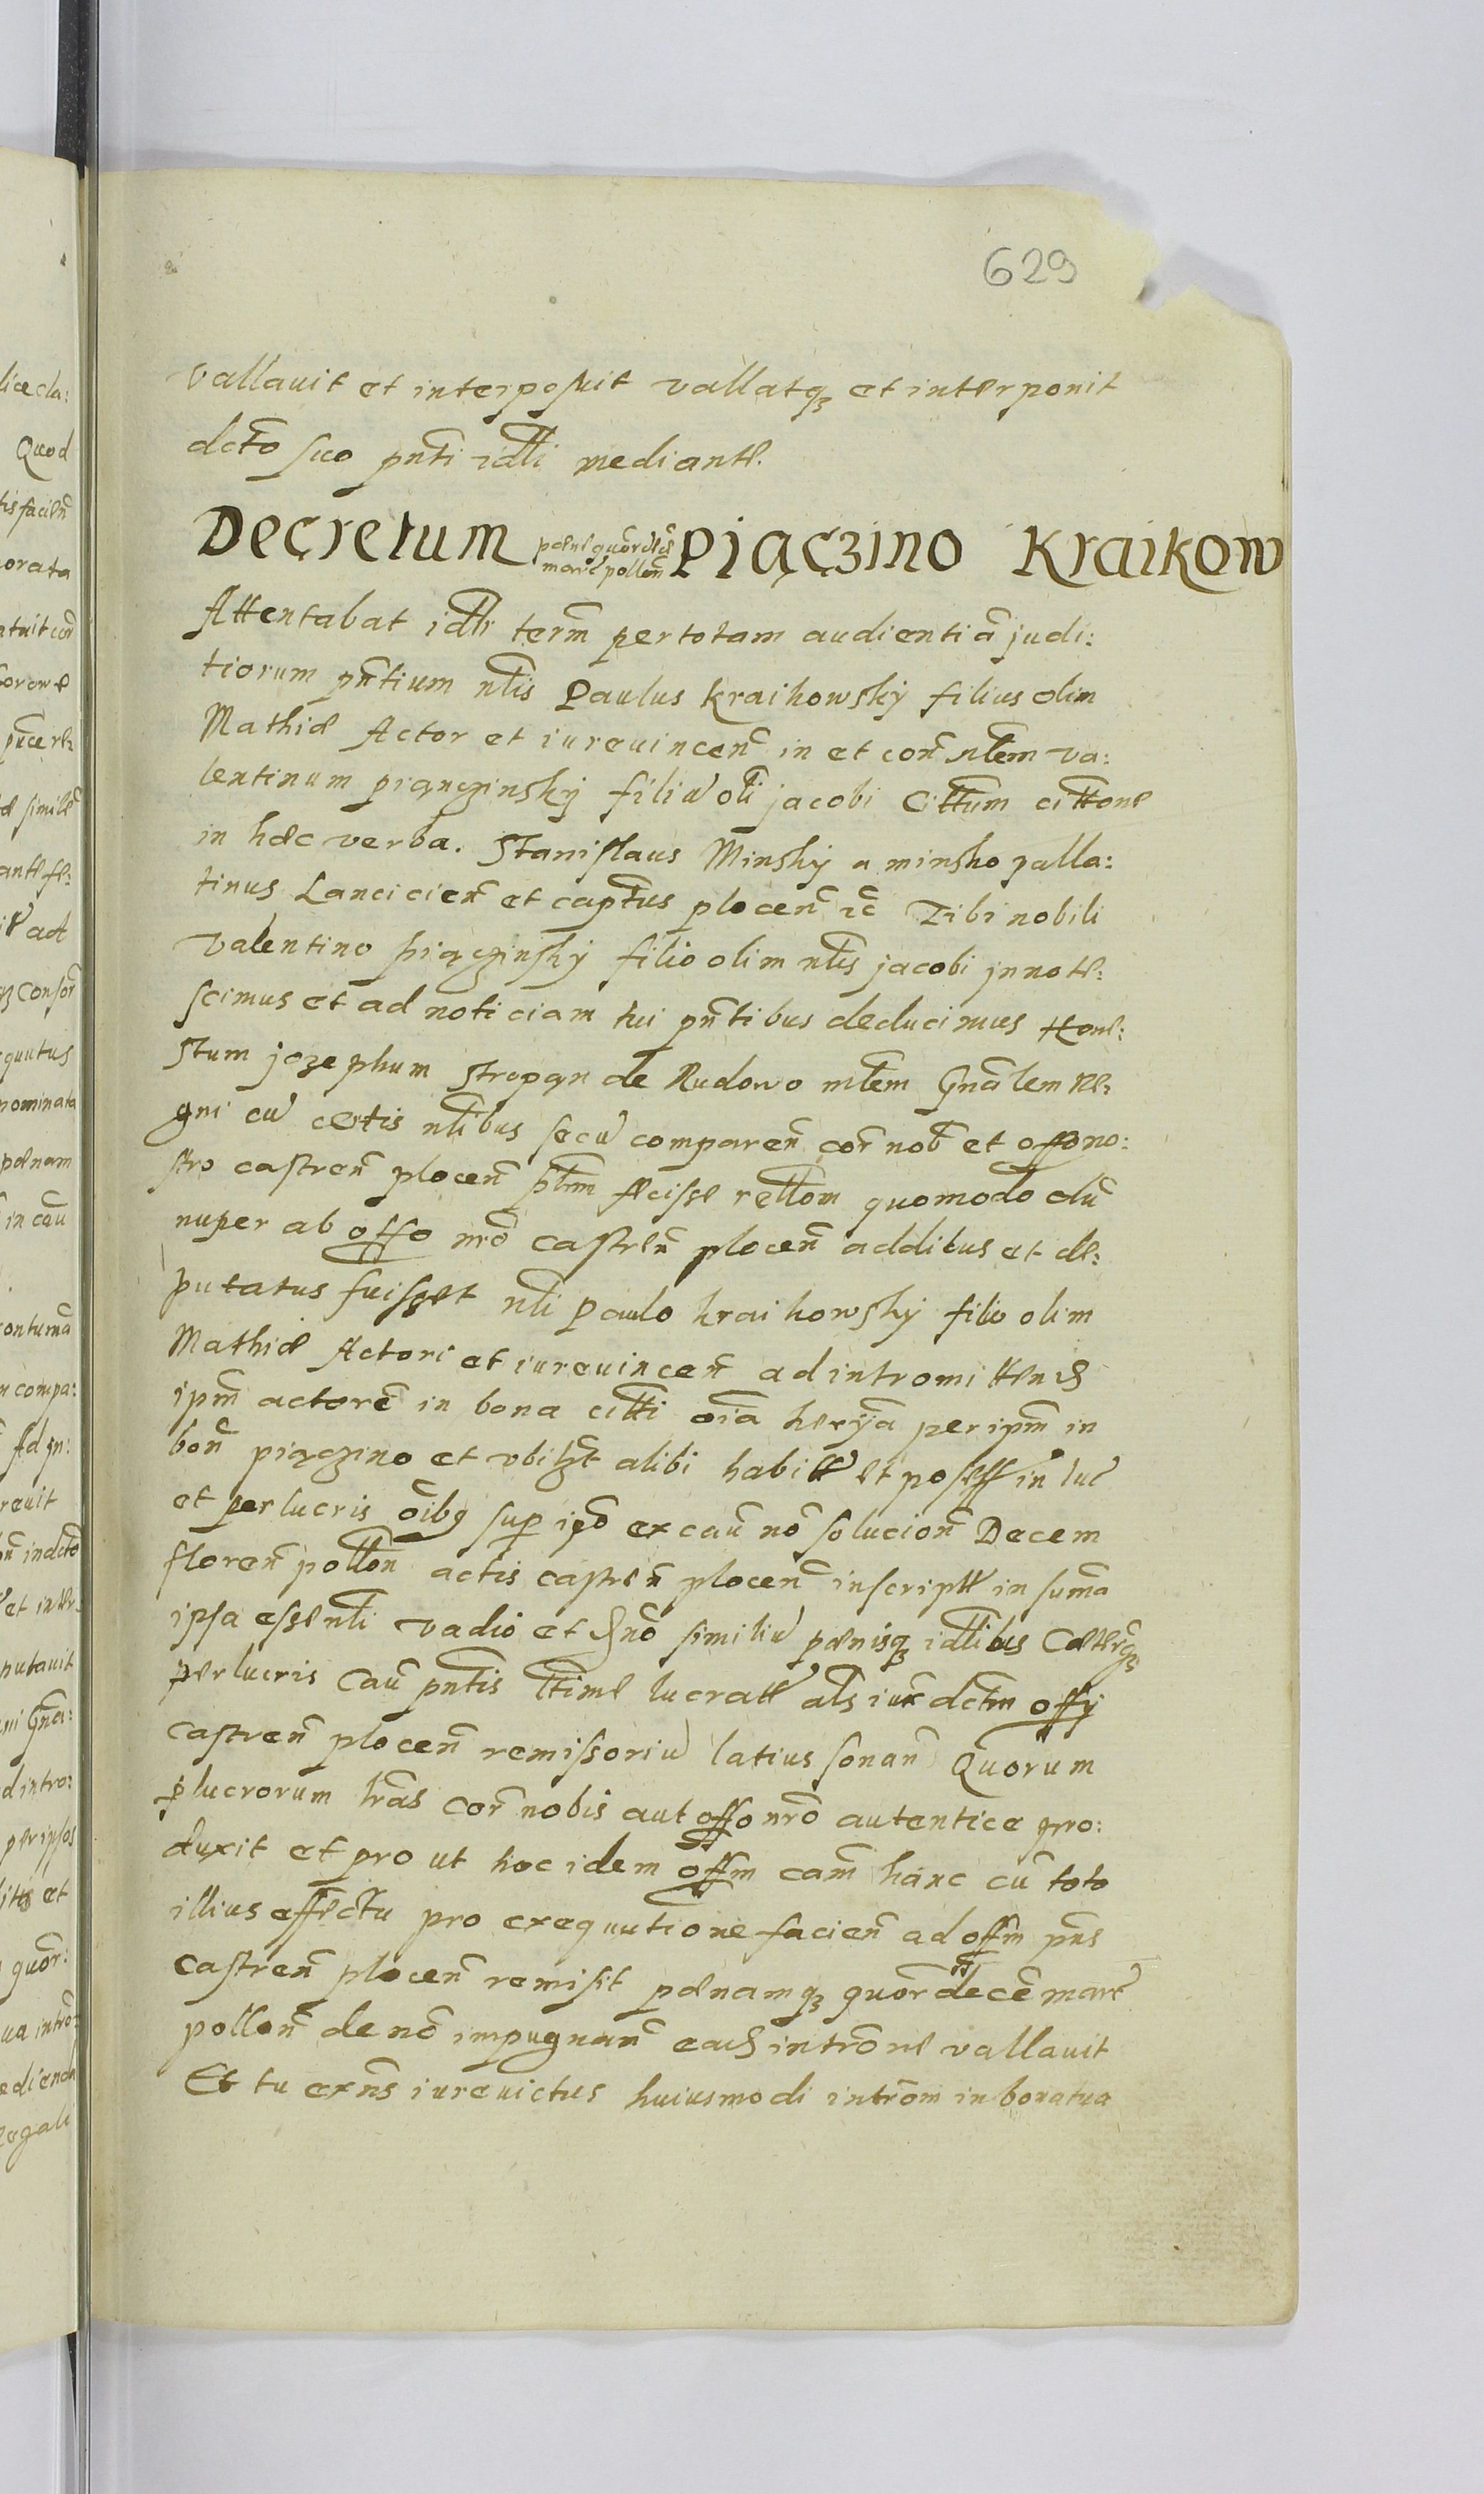 629
vallauit et interposuit vallatqȝ et interponit
dcto suo pnti idli mediante.
Decretum pænæ quordec marc pollon Piączino Kraikow
Attentabat idli term per totam audientiã judi:
tiorum pntium nlis Paulus kraikowsky filius olim
Mathiæ Actor et iureuincen in et con nlem va:
lentinum piąnczinsky filiu oli jacobi Cittum cittone
in hæc verba. Stanislaus Minsky a minsko palla:
tinus Lancicien et captus plocen ic Tibi nobili
Valentino piączinsky filio olim nlis jacobi jnnote:
scimus et ad noticiam tui pntibus deducimus Hone:
stum jozephum stropan de Rudowo mlem Gnalem Re:
gni cu certis nlibus secu comparen cor nob et offo no:
stro castren plocen plnm fecisse rellom quomodo dũ
nuper ab offo nro castren plocen additus et de:
putatus fuisset nli Paulo kraikowsky filio olim
Mathiæ Actori et iureuincen ad intromitten
ipm actorẽ in bona citti oĩa heryã per ipm in
bon piączino et vbilȝt alibi habitt et possess in luc
et perlucris oibȝ sup ico ex cau no solucion Decem
floren pollon actis castren plocen inscriptt in suma
ipsa essenli vadio et dno similiu pænisqȝ idlibus Cæterqȝ
perlucris cau pntis ltime lucratt als iux dctm offy
castren plocen remissoriu latius sonan Quorum
plucrorum lras cor nobis aut offo nro autentice pro:
duxit et pro ut hoc idem offm cam hanc cũ toto
illius effectu pro exequutione facien ad offm pns
castren plocen remisit pænamqȝ quor decẽ marc
pollon de no impugnan ead introne vallauit
Et tu exns iureuictus huiusmodi introm in bona tua